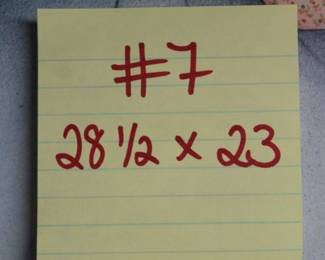 #7
28 1/2 x 23